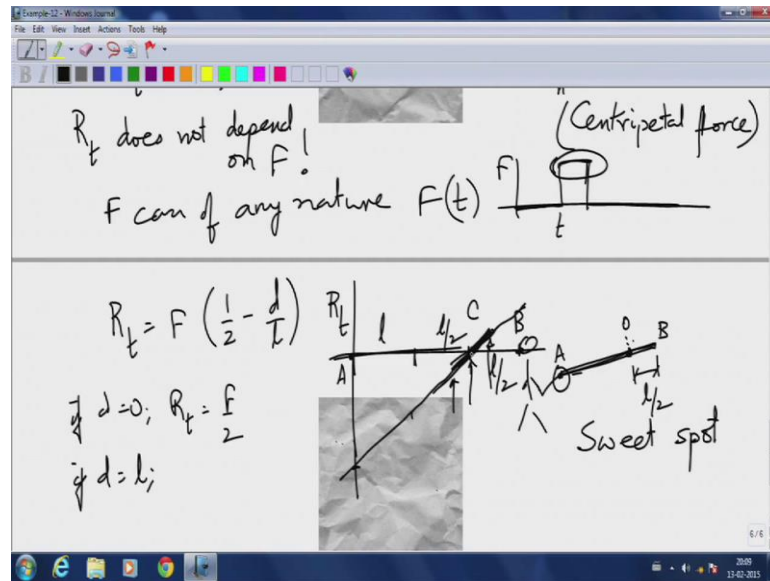 Example-12 - Windows Journal
File Edit View Insert Actions Tools Help
B I
R_t does not depend
on F!
(Centripetal force)
F can of any nature F(t)
F
t
R_t = F (1/2 - d/l)
if d=0; R_t = F/2
if d=l;
R_t
A
l
l/2
C
l/2
B
A
O
B
l/2
Sweet spot
6/6
20:09
13-02-2015